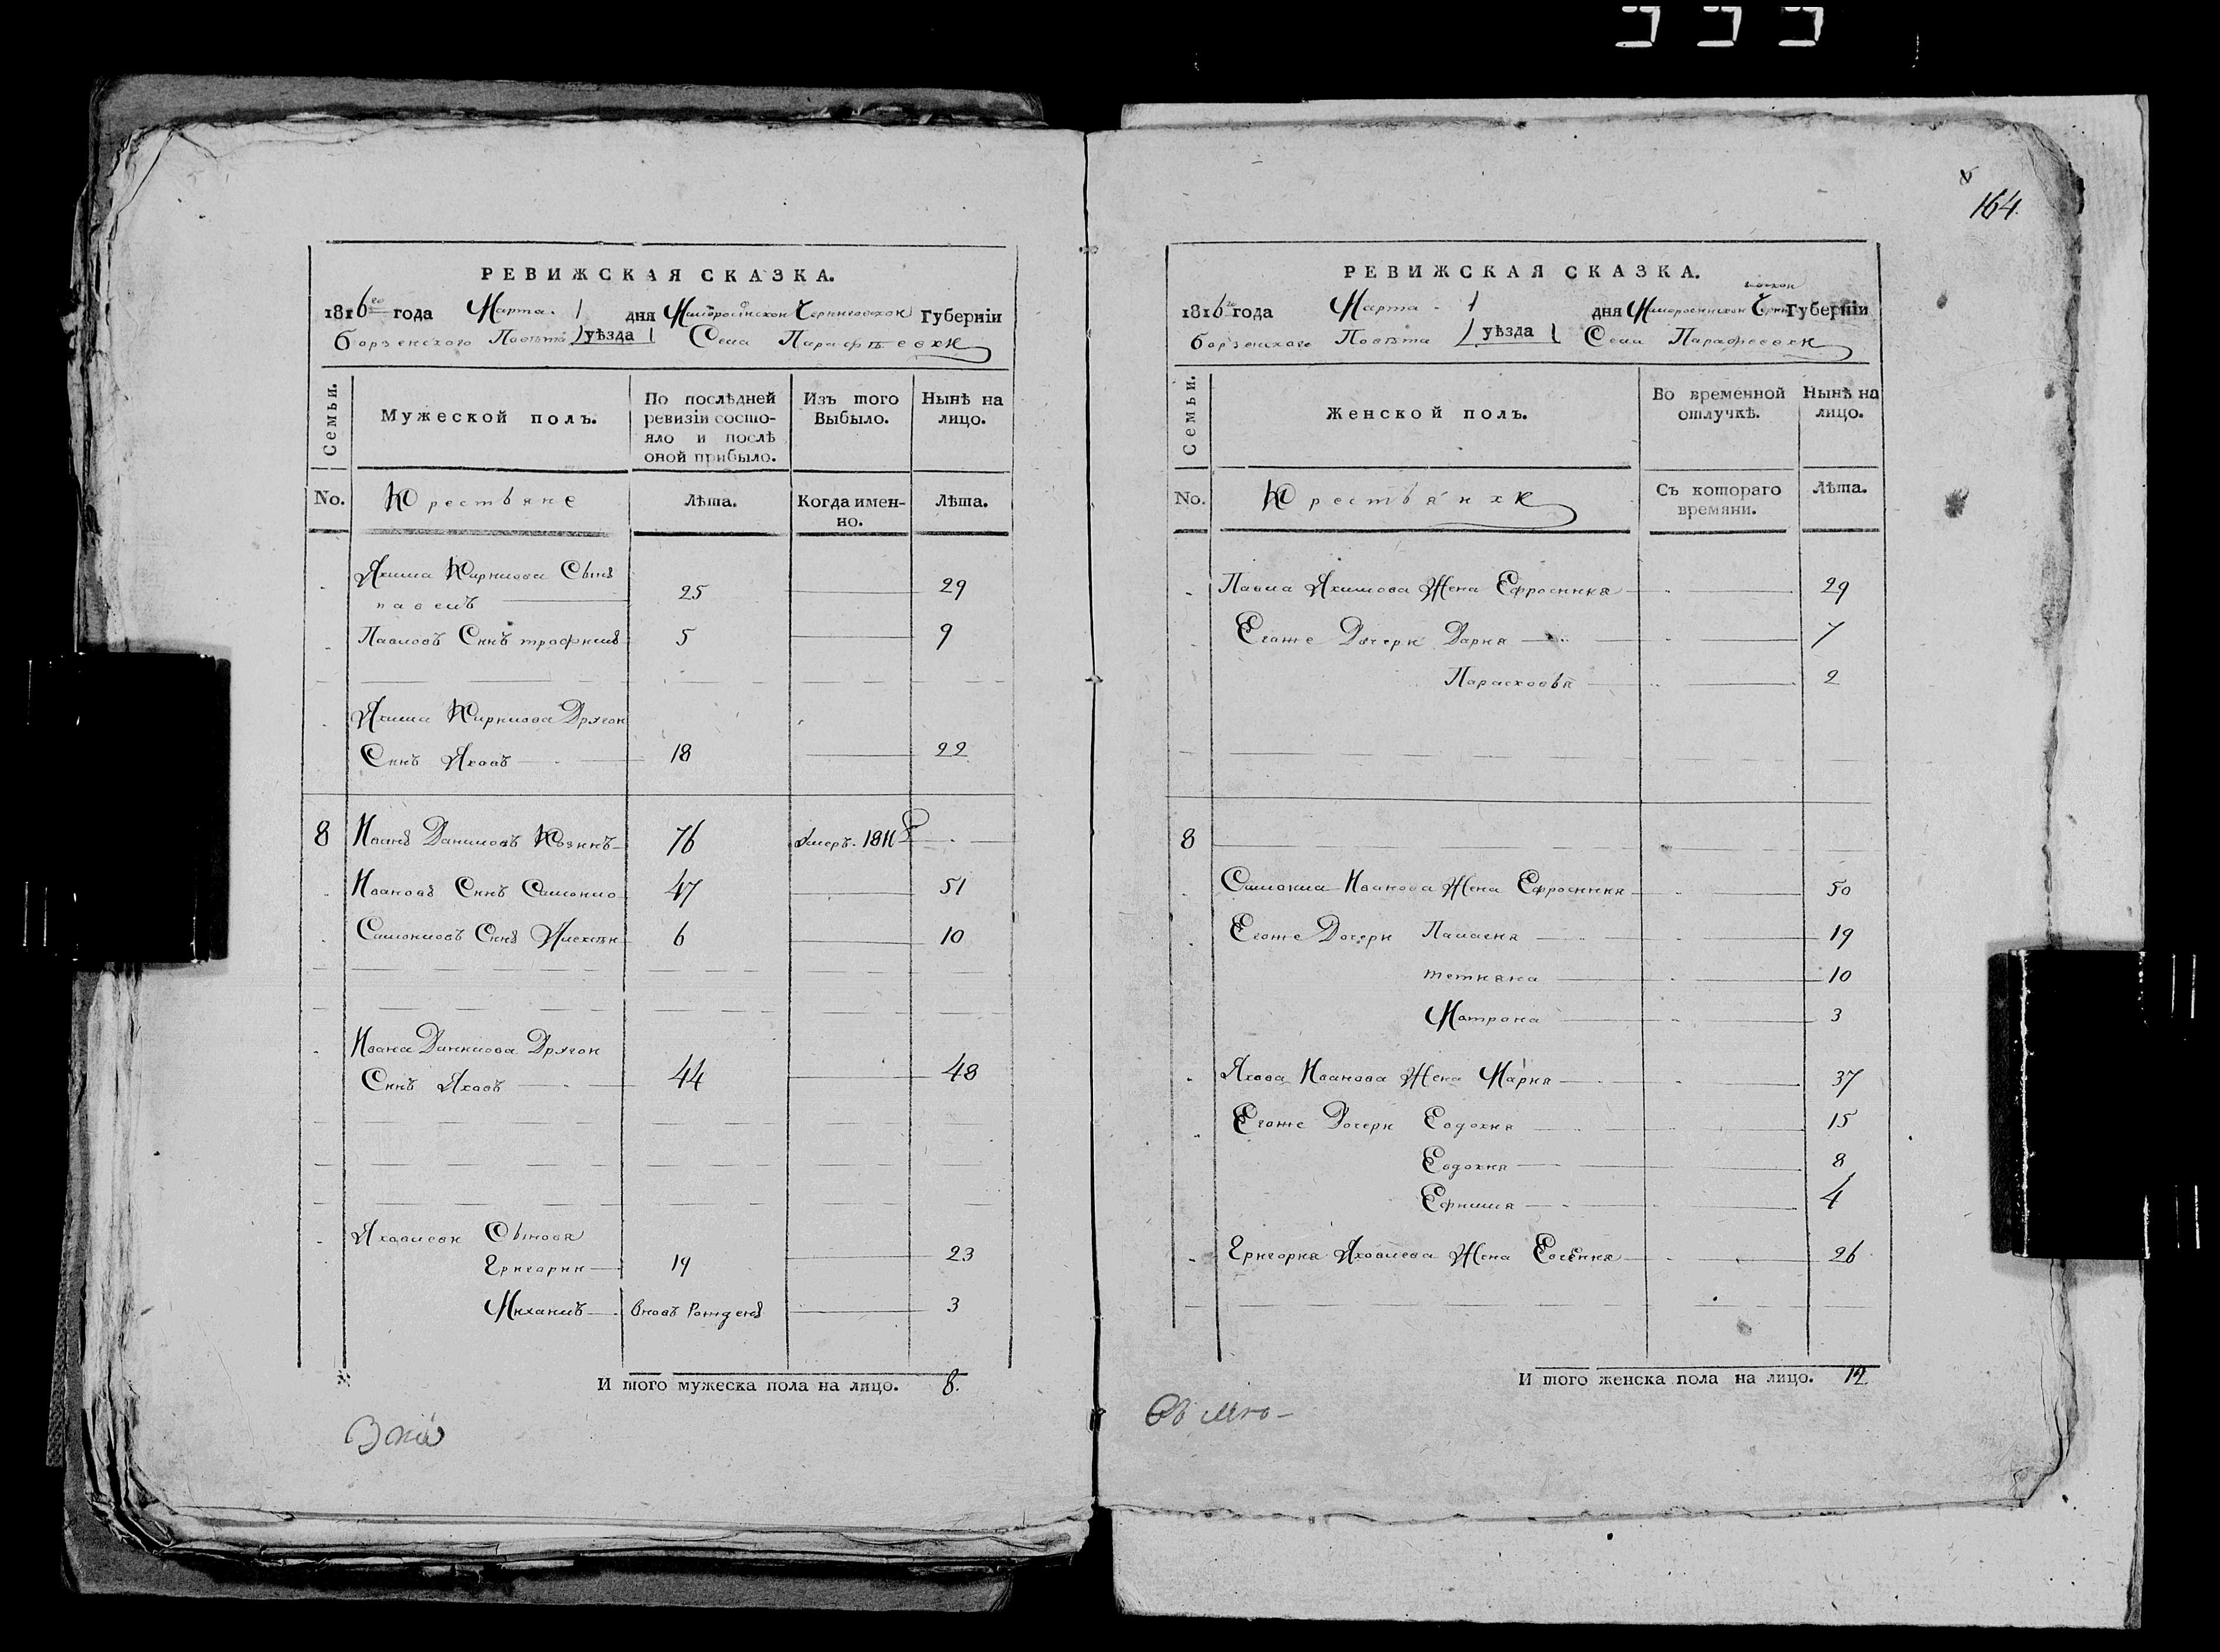 164.
РЕВИЖСКАЯ СКАЗКА.
1816го года Марта 1 дня Малоросійской Черниговской Губерніи
борзенского Повѣта уѣзда Села Парафѣевки
Семьи.
Мужеской полъ.
По послѣдней ревизіи состояло и послѣ оной прибыло.
Изъ того Выбыло.
Нынѣ на лицо.
No. Крестьяне Лѣта. Когда именно. Лѣта.
Якима Карпиова Сынъ
павелъ 25 29
Павловъ Синъ трофимъ 5 9
Якима Карпиова Другои
Синъ Яковъ 18 22
8 Иванъ Даниловъ 76 Умеръ 1811 г
Ивановъ Синъ Самоило 47 51
Самоиловъ Синъ Алексѣи 6 10
Ивана Данилова Другои
Синъ Яковъ 44 48
Яковлеви Сынова
Григории 19 23
Михаилъ вновъ Рожденъ 3
И того мужеска пола на лицо. 8.
РЕВИЖСКАЯ СКАЗКА.
1816го года Марта 1 дня Малоросииской Черниговской Губерніи
борзенского Повѣта уѣзда Села Парафеевки
Семьи.
Женской полъ.
Во временной отлучкѣ.
Нынѣ на лицо.
No. Крестьянки Съ котораго времяни. Лѣта.
Павла Якимова Жена Ефросиния 29
Егоже Дочери Дария 7
Парасковѣя 2
8
Самоила Иванова Жена Ефросиния 50
Егоже Дочери Палагия 19
тетияна 10
Матрона 3
Якова Иванова Жена Мария 37
Егоже Дочери Евдокия 15
Евдокия 8
Ефимия 4
Григория Яковлева Жена Евгения 26
И того женска пола на лицо. 12